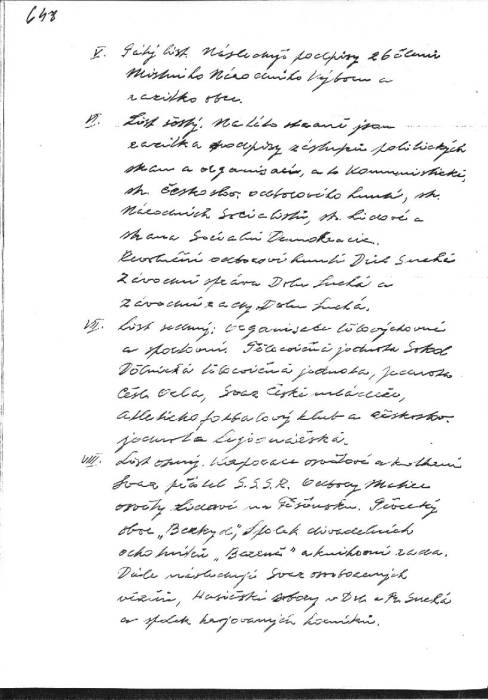 648
V. Pátý list. Následují podpisy 26 členů
Místního Národního Výboru a
razítko obce.
VI. List šestý. Na této straně jsou
razítka a podpisy zástupců politických
stran a organisací, a to Komunistické,
str. českoslov. odborového hnutí, str.
Národních Socialistů, str. Lidové a
strana Sociální Demokracie.
Revoluční odborové hnutí Důl Suchá
Závodní správa Dolu Suchá a
závodní rady Dolu Suchá.
VII. List sedmý: Organisace tělovýchovné
a sportovní. Tělocvičná jednota Sokol
Dělnická tělocvičná jednota, jednota
Česk. Orla, Svaz České mládeže,
Atletický fotbalový klub a českoslov.
jednota Legionářská.
VIII. List osmý. Korporace osvětové a kulturní
Svaz přátel S.S.S.R. Odbory Matice
osvěty Lidové na Těšínsku. Pěvecký
sbor „Bezkyd", Spolek divadelních
ochotníků „Bezruč" a knihovní rada.
Dále následují Svaz osvobozených
vězňů, Hasičské sbory v Dol. a Pr. Suchá
a spolek krojovaných horníků.